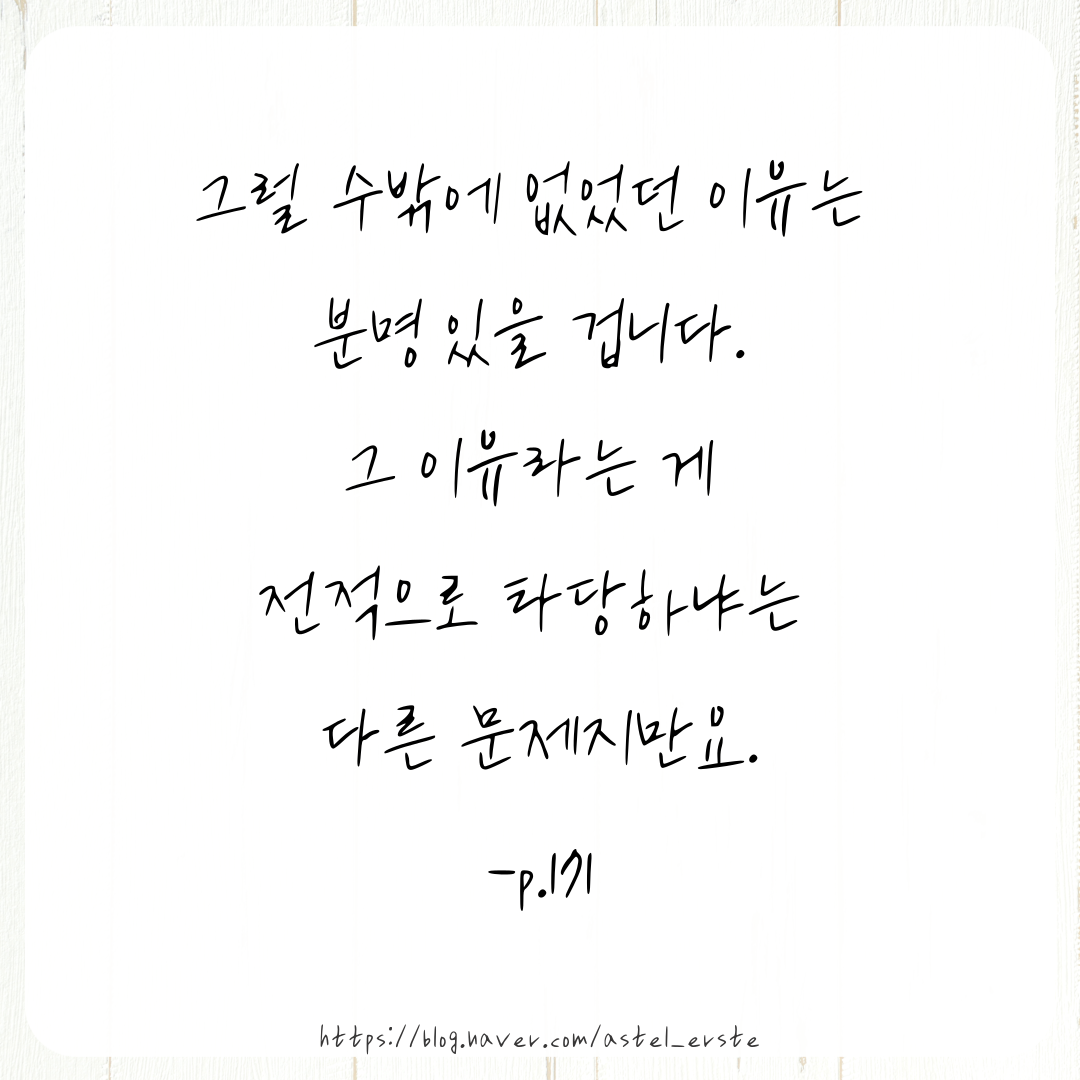 그럴 수밖에 없었던 이유는
분명 있을 겁니다.
그 이유라는 게
전적으로 타당하냐는
다른 문제지만요.
-p.171
https://blog.naver.com/astel_erste